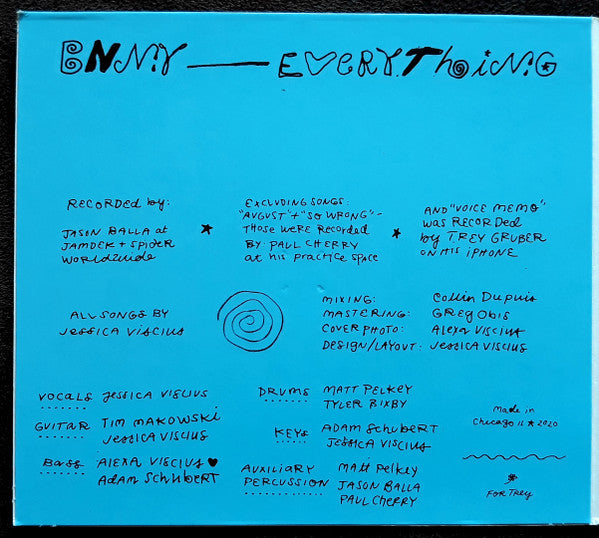 BNNY — EVERYThiNG
RECORDED by:
JASON BALLA at
JAMDEK + SPiDER
WORLDWide
EXCLUDING SONGS:
"AUGUST" + "SO WRONG" -
Those WERE RECORDED
BY PAUL CHERRY
at his PRACTICE SPACE
AND "VOICE MEMO"
was RECORDED
by TREY GRUBER
ON HIS iPHONE
ALL SONGS BY
Jessica Viscius
MIXING: Collin Dupuis
MASTERING: GREG Obis
COVER PHOTO: Alexa Viscius
DESIGN/LAYOUT: Jessica Viscius
VOCALS Jessica Viscius
GUITAR TIM MAKOWSKI
Jessica Viscius
BASS ALEXA VISCIUS ♥
Adam Schubert
DRUMS MATT PELKEY
TYLER BIXBY
KEYS ADAM SchuBERT
JESSICA VISCIUS
AUXILIARY
PERCUSSION Matt Pelkey
JASON BALLA
PAUL CHERRY
Made in
Chicago IL ★ 2020
FOR TREY